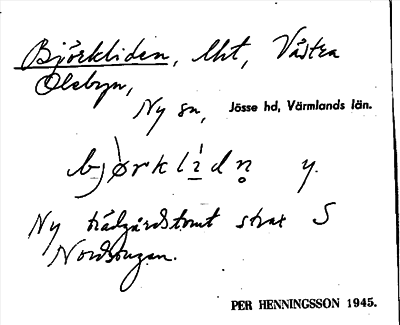 Björkliden, lht, Västra
Olsbyn,
Ny sn, Jösse hd, Värmlands län.
bjørklidn y.
Ny trädgårdstomt strax S
Nordstugan.
PER HENNINGSSON 1945.